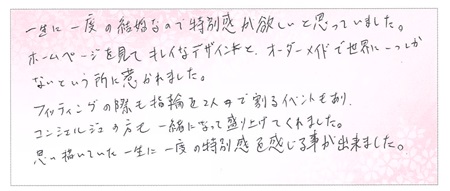 一生に一度の結婚なので特別感が欲しいと思っていました。
ホームページを見てキレイなデザインと、オーダーメイドで世界に一つしか
ないという所に惹かれました。
フィッティングの際も指輪を2人で割るイベントもあり、
コンシェルジュの方も一緒になって盛り上げてくれました。
思い描いていた一生に一度の特別感を感じる事が出来ました。